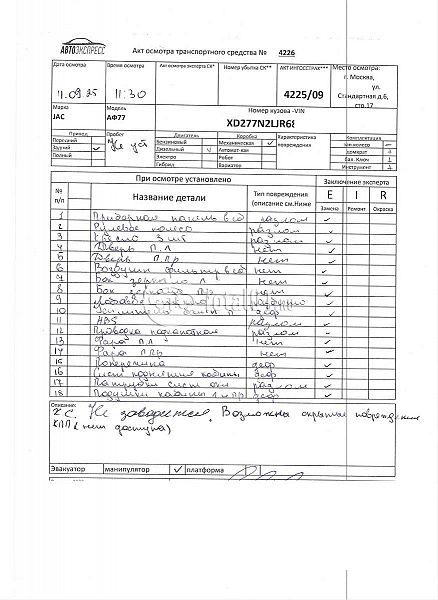 АВТОЭКСПРЕСС
Акт осмотра транспортного средства № 4226
Дата осмотра Время осмотра Акт осмотра эксперта СК* Номер убытка СК** АКТ ИНГОССТРАХ*** Место осмотра:
г. Москва,
ул.
11.09.25 11:30 4225/09 Стандартная д.6,
стр.17
Марка Модель Номер кузова -VIN
JAC АФ77 XD277N2LJR6
Привод Пробег Двигатель Коробка Характеристика повреждения Комплектация
Передний Не уст Бензиновый Механическая ✓ зап.колесо –
Задний ✓ Дизельный ✓ Автомат-кая домкрат +
Полный Электро Робот бал. Ключ 1
Гибрид Вариатор Инструмент +
При осмотре установлено Заключение эксперта
№ п/п Название детали Тип повреждения (описание см.Ниже E I R
Замена Ремонт Окраска
1 Приборная панель в сб разлом ✓
2 Рулевое колесо разлом ✓
3 Кресло 3 шт разлом ✓
4 Дверь П.Л нет ✓
5 Дверь П.Пр нет ✓
6 Воздушн фильтр в сб нет ✓
7 Бок зеркало Л нет ✓
8 Бок зеркало Пр нет ✓
9 Лобовое стекло
10 Усилитель П деф ✓
11 разлом ✓
12 Проводка разлом
13 Фара П.Л нет ✓
14 Фара П.Пр нет ✓
15 Поперечина деф ✓
16 Сист кабины деф ✓
17 Патрубки сист охл разлом ✓
18 Подушки кабины л пр деф ✓
Описание:
Х С. Не заводится. Возможны скрытые повреждения
КПП (нет доступа)
Эвакуатор манипулятор ✓ платформа